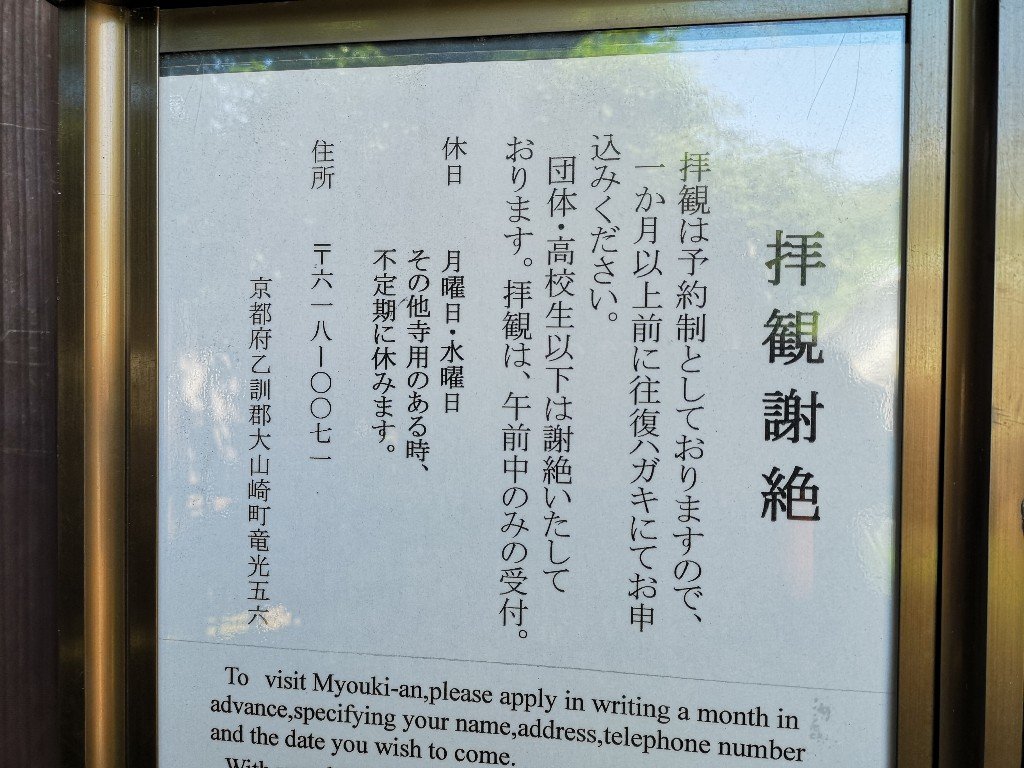 拝観謝絶
拝観は予約制としておりますので、
一か月以上前に往復ハガキにてお申
込みください。
団体・高校生以下は謝絶いたして
おります。拝観は、午前中のみの受付。
休日 月曜日・水曜日
その他寺用のある時、
不定期に休みます。
住所 〒六一八ー〇〇七一
京都府乙訓郡大山崎町竜光五六
To visit Myouki-an,please apply in writing a month in
advance,specifying your name,address,telephone number
and the date you wish to come.